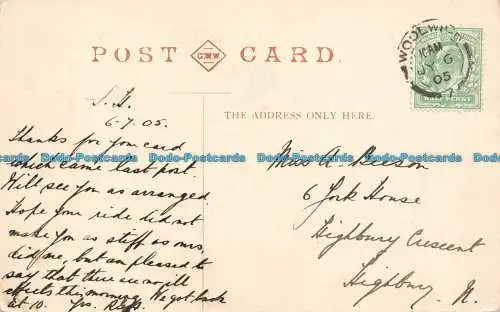 POST G.W.W. CARD.
WOOLWICH
10 AM
JY 6
05
HALFPENNY
THE ADDRESS ONLY HERE.
6-7.05.
Thanks for your card
which came last post.
Will see you as arranged
Hope your ride did not
make you as stiff as mine
did me, but am pleased to
say that there are no ill
effects this morning. We got back
at 10. Yrs.
Miss A. Beeson
6 York House
Highbury Crescent
Highbury. N.
Dodo-Postcards Dodo-Postcards Dodo-Postcards Dodo-Postcards Dodo-Postcards